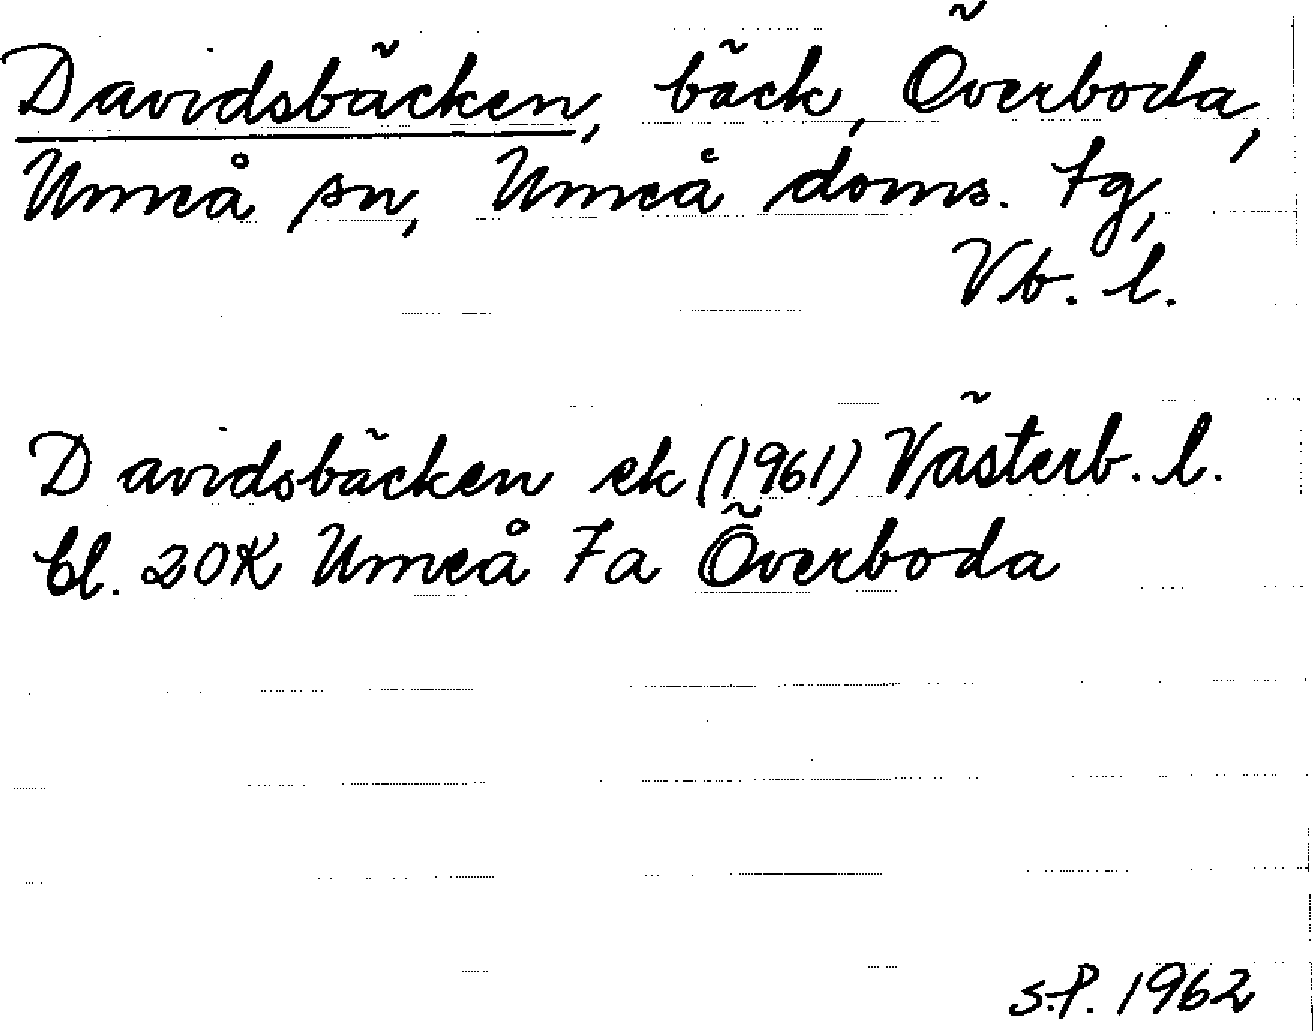 Davidsbäcken, bäck, Överboda,
Umeå sn, Umeå doms. tg,
Vb. l.
Davidsbäcken ek (1961) Västerb. l.
bl. 20K Umeå 7a Överboda
S.P. 1962